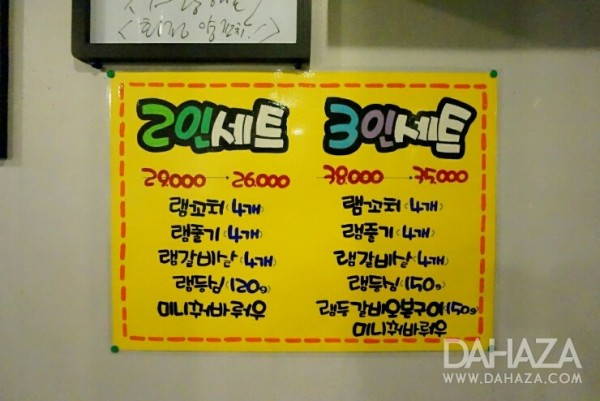 <회전 양꼬치!>
2인세트
28.000 → 26.000
램꼬치 (4개)
램풀기 (4개)
램갈비살 (4개)
램등심 (120g)
미니꿔바뤄우
3인세트
38.000 → 35.000
램꼬치 (4개)
램풀기 (4개)
램갈비살 (4개)
램등심 (150g)
램두갈비모듬구이 (150g)
미니꿔바뤄우
DAHAZA
WWW.DAHAZA.COM